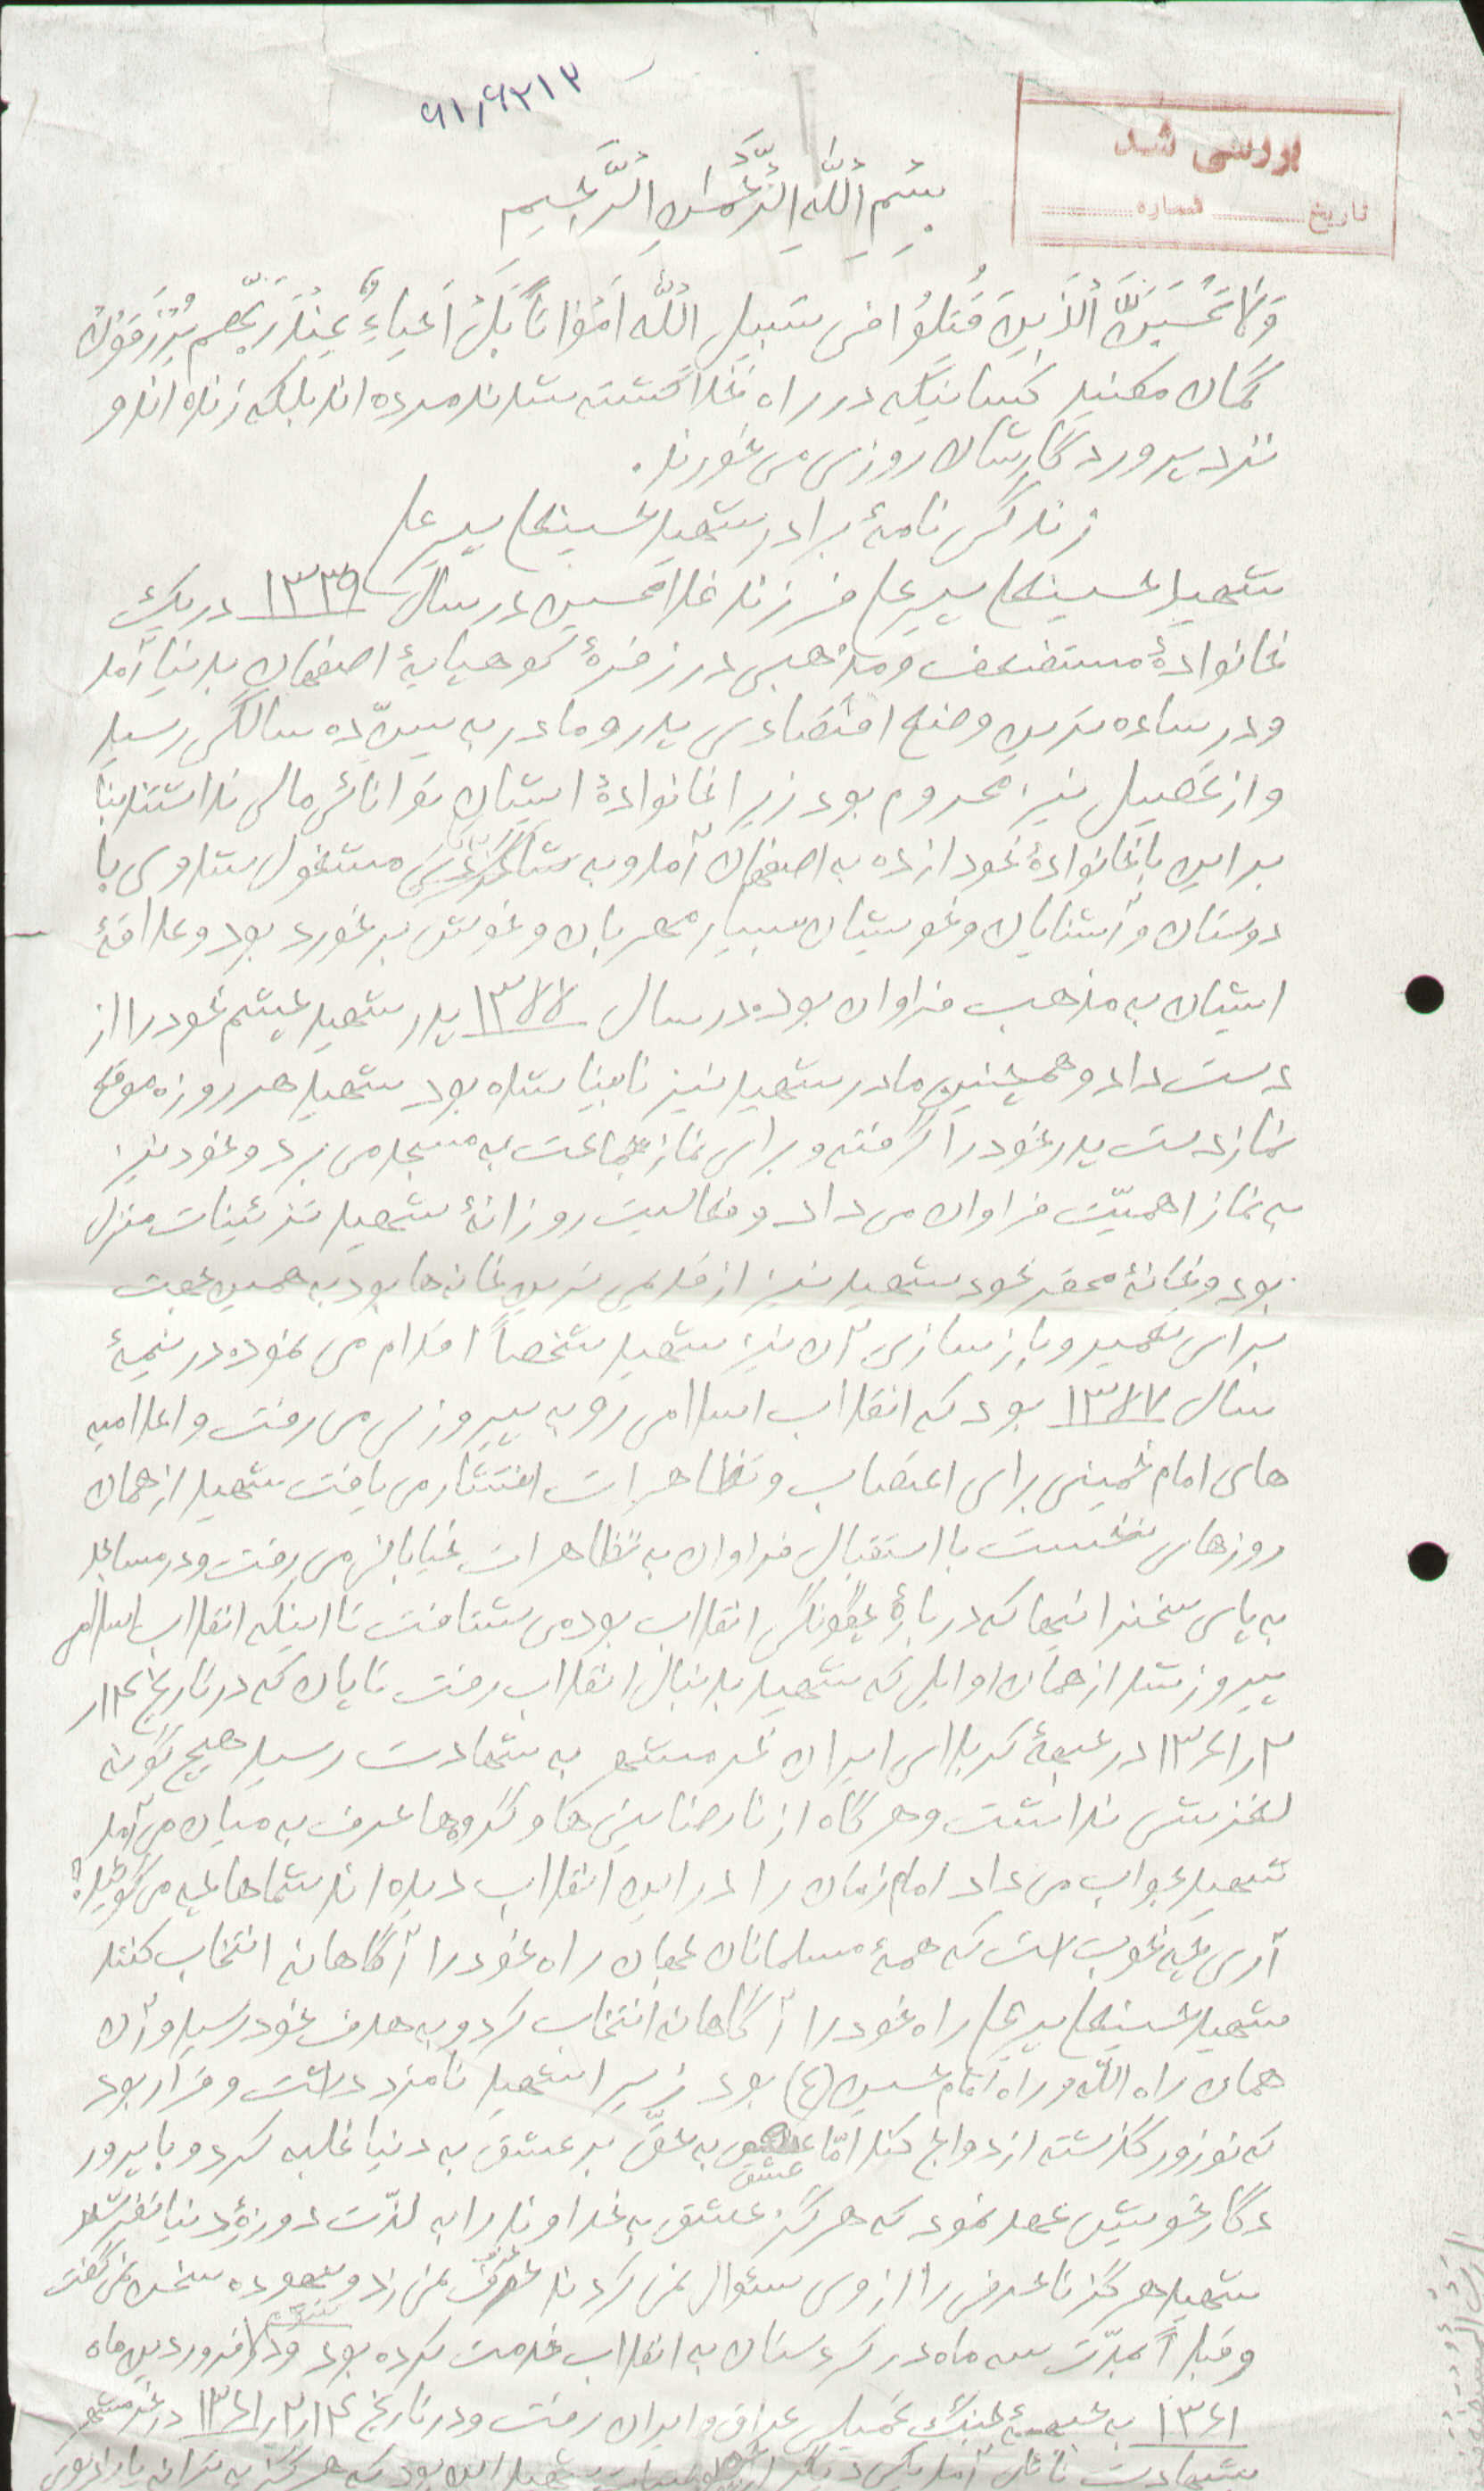 ۶۱٫۶۲۱۲
بررسی شد
تاریخ ............ شماره ............
بِسْمِ اللهِ الرَّحْمنِ الرَّحیمِ
وَلا تَحْسَبَنَّ الَّذینَ قُتِلُوا فی سَبیلِ الله اَمْواتاً بَلْ اَحیاءٌ عِنْدَ رَبِّهِم یُرْزَقُونْ
گمان مکنید کسانیکه در راه خدا کشته شدند مرده اند بلکه زنده اند و
نزد پروردگارشان روزی می خورند.
زندگی نامهٔ برادر شهید حسینعلی پیرعلی
شهید حسینعلی پیرعلی فرزند غلامحسین در سال ۱۳۳۹ در یک
خانوادهٔ مستضعف و مذهبی در زفرهٔ کوهپایهٔ اصفهان بدنیا آمد
و در ساده ترین وضع اقتصادی پدر و مادر به سنّ ده سالگی رسید
و از تحصیل نیز محروم بود زیرا خانوادهٔ ایشان توانائی مالی نداشتند بنا
براین با خانوادهٔ خود از ده به اصفهان آمد و به مشغول شد وی با
دوستان و آشنایان و خویشان بسیار مهربان و خوش برخورد بود و علاقهٔ
ایشان به مذهب فراوان بوده در سال پدر شهید چشم خود را از
دست داد و همچنین مادر شهید نیز نابینا شده بود شهید هر روزه موقع
نماز دست پدر خود را گرفته و برای نماز جماعت به مسجد می برد و خود نیز
به نماز اهمیّت فراوان می داد و فعالیت روزانهٔ شهید تزئینات منزل
بود و خانهٔ محقر خود شهید نیز از قدیمی ترین خانه ها بود به همین جهت
برای تعمیر و بازسازی آن نیز شهید شخصاً اقدام می نموده در نیمهٔ
سال ۱۳۵۷ بود که انقلاب اسلامی رو به پیروزی می رفت و اعلامیه
های امام خمینی برای اعتصاب و تظاهرات انتشار می یافت شهید از همان
روزهای نخست با استقبال فراوان به تظاهرات خیابانی می رفت و در مساجد
به پای سخنرانیها که دربارهٔ چگونگی انقلاب بود می شتافت تا اینکه انقلاب اسلامی
پیروز شد از همان اوایل که شهید بدنبال انقلاب رفت تا پایان که در تاریخ ۱۴ر
۲ر۱۳۶۱ در جبههٔ کربلای ایران خرمشهر به شهادت رسید هیچ گونه
لغزشی نداشت و هر گاه از نارضایتی ها و گروهها حرف به میان می آمد
شهید جواب می داد امام زمان را در این انقلاب دیده اند شماها چه می گوئید؟
آری چه خوب است که همهٔ مسلمانان جهان راه خود را آگاهانه انتخاب کنند
شهید حسینعلی پیرعلی راه خود را آگاهانه انتخاب کرد و به هدف خود رسید و آن
همان راه الله و راه امام حسین (ع) بود زیرا شهید نامزد داشت و قرار بود
که نوروز گذشته ازدواج کند امّا عشق به حقّ بر عشق به دنیا غلبه کرد و با پرور
دگار خویش عهد نمود که هرگز عشق به خداوند را به لذّت دو روزهٔ دنیا نفروشد
شهید هرگز تا حرفی را از وی سئوال نمی کردند حرف نمی زد و بیهوده سخن نمی گفت
و قبلاً بمدّت سه ماه در کردستان به انقلاب خدمت کرده بود و در فروردین ماه
۱۳۶۱ به جبههٔ جنگ تحمیلی عراق و ایران رفت و در تاریخ ۱۴ر۲ر۱۳۶۱ در خرمشهر
شهادت نائل آمد یکی دیگر از شهید این بود که هرگز